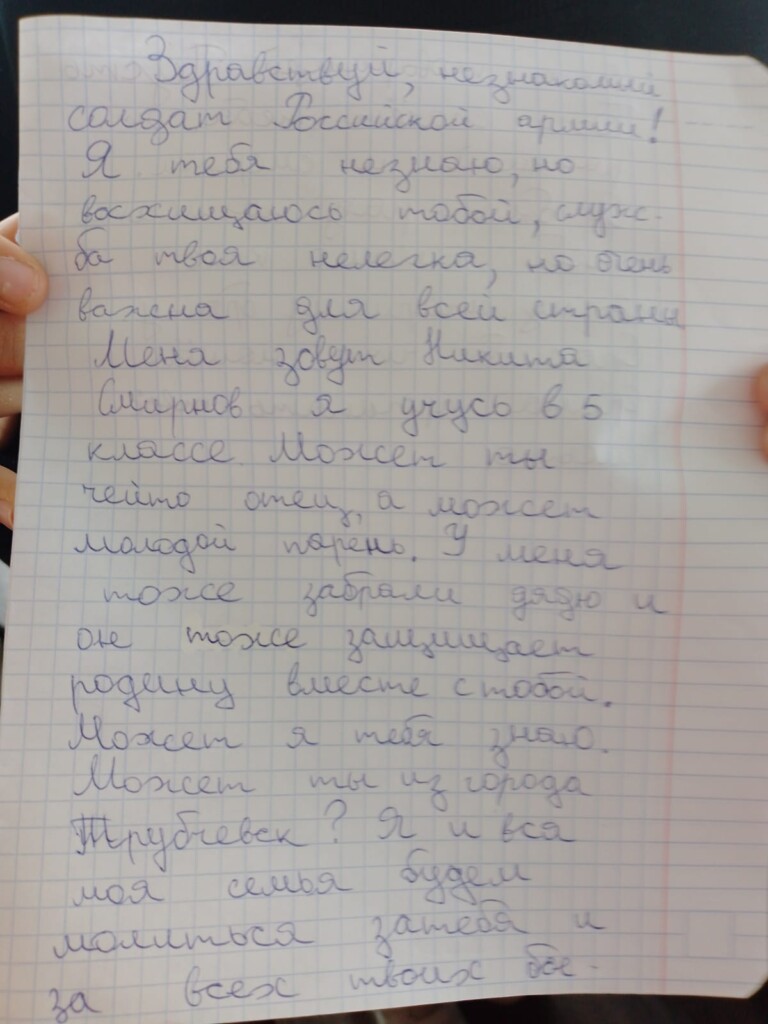 Здравствуй, незнакомый
солдат Российской армии!
Я тебя незнаю, но
восхищаюсь тобой, служ-
ба твоя нелегка, но очень
важна для всей страны
Меня зовут Никита
Смирнов я учусь в 5
классе. Может ты
чейто отец, а может
молодой парень. У меня
тоже забрали дядю и
он тоже защищает
родину вместе стобой.
Может я тебя знаю.
Может ты из города
Трубчевск? Я и вся
моя семья будем
молиться затебя и
за всех твоих бое-